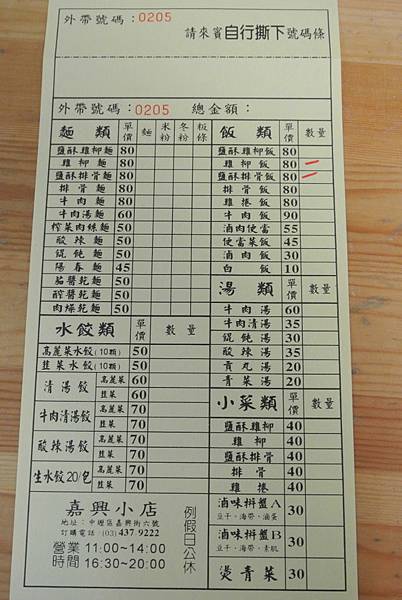 外帶號碼：0205
請來賓自行撕下號碼條
外帶號碼：0205 總金額：
麵類 單價 麵 米粉 冬粉 粄條
鹽酥雞柳麵 80
雞柳麵 80
鹽酥排骨麵 80
排骨麵 80
牛肉麵 80
牛肉湯麵 60
榨菜肉絲麵 50
酸辣麵 50
餛飩麵 50
陽春麵 45
茄醬乾麵 50
醡醬乾麵 50
肉燥乾麵 50
水餃類 單價 數量
高麗菜水餃(10顆) 50
韭菜水餃(10顆) 50
清湯餃 高麗菜 60
韭菜 60
牛肉清湯餃 高麗菜 70
韭菜 70
酸辣湯餃 高麗菜 70
韭菜 70
生水餃20/包 高麗菜 70
韭菜 70
嘉興小店
地址：中壢區嘉興街六號
訂購電話：(03)437-9222
營業時間 11:00~14:00
16:30~20:00
例假日公休
飯類 單價 數量
鹽酥雞柳飯 80
雞柳飯 80
鹽酥排骨飯 80
排骨飯 80
雞捲飯 80
牛肉飯 90
滷肉便當 55
便當菜飯 45
滷肉飯 30
白飯 10
湯類 單價 數量
牛肉湯 60
牛肉清湯 35
餛飩湯 30
酸辣湯 35
貢丸湯 20
青菜湯 20
小菜類 單價 數量
鹽酥雞柳 40
雞柳 40
鹽酥排骨 40
排骨 40
雞捲 40
滷味拼盤A 30
豆干、海帶、滷蛋
滷味拼盤B 30
豆干、海帶、素肌
燙青菜 30